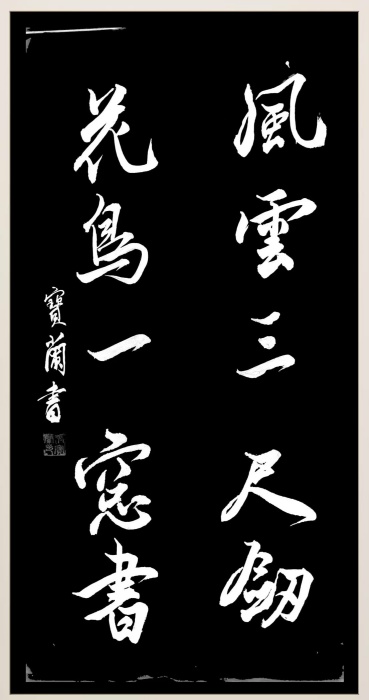 風雲三尺劒
花鳥一窓書
寶蘭書